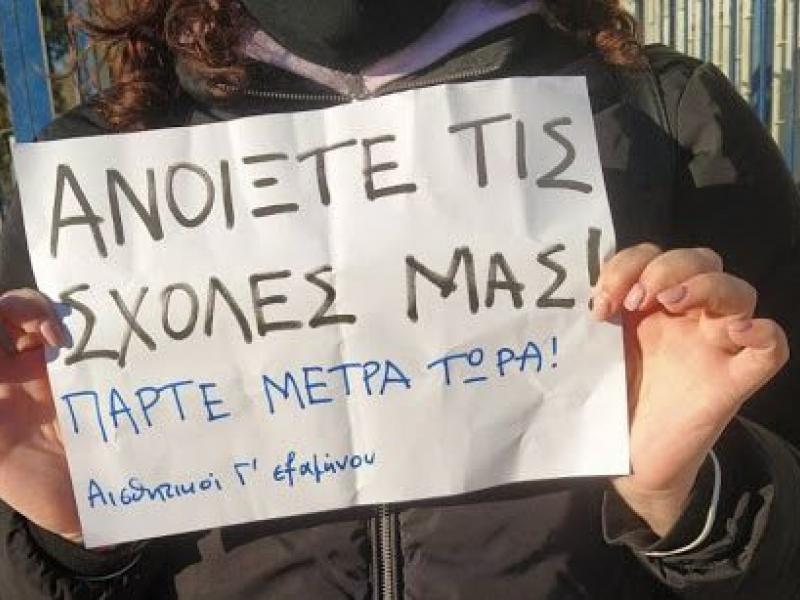 ΑΝΟΙΞΤΕ ΤΙΣ
ΣΧΟΛΕΣ ΜΑΣ!
ΠΑΡΤΕ ΜΕΤΡΑ ΤΩΡΑ!
Αισθητικοί Γ' εξαμήνου